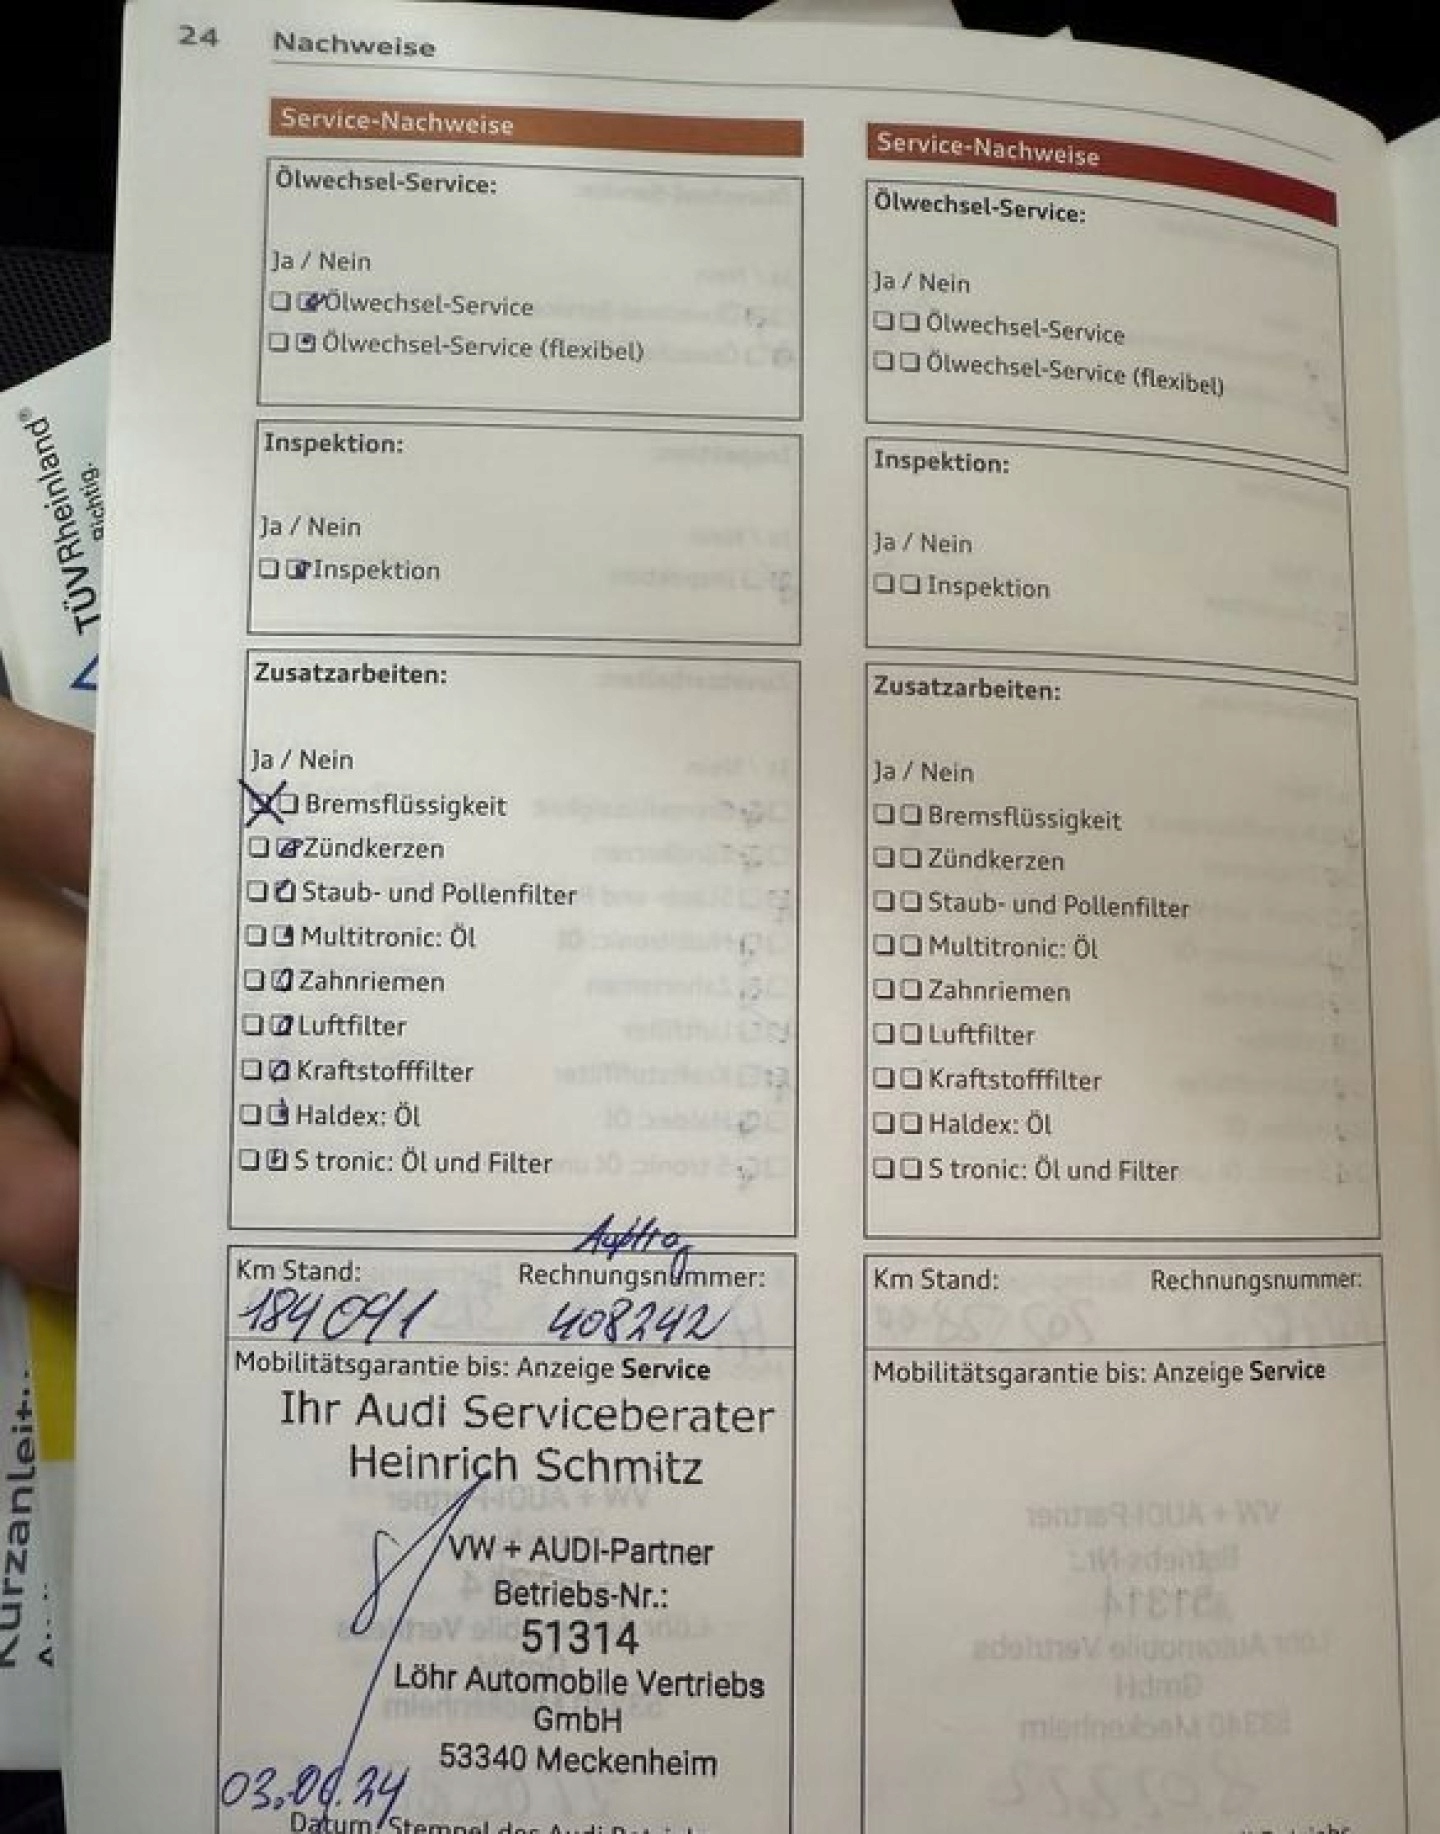 24 Nachweise
Service-Nachweise
Ölwechsel-Service:
Ja / Nein
Ölwechsel-Service
Ölwechsel-Service (flexibel)
Inspektion:
Ja / Nein
Inspektion
Zusatzarbeiten:
Ja / Nein
Bremsflüssigkeit
Zündkerzen
Staub- und Pollenfilter
Multitronic: Öl
Zahnriemen
Luftfilter
Kraftstofffilter
Haldex: Öl
S tronic: Öl und Filter
Auftrag
Km Stand: Rechnungsnummer:
184091 408242
Mobilitätsgarantie bis: Anzeige Service
Ihr Audi Serviceberater
Heinrich Schmitz
VW + AUDI-Partner
Betriebs-Nr.:
51314
Löhr Automobile Vertriebs
GmbH
53340 Meckenheim
Datum/Stempel des Audi
Service-Nachweise
Ölwechsel-Service:
Ja / Nein
Ölwechsel-Service
Ölwechsel-Service (flexibel)
Inspektion:
Ja / Nein
Inspektion
Zusatzarbeiten:
Ja / Nein
Bremsflüssigkeit
Zündkerzen
Staub- und Pollenfilter
Multitronic: Öl
Zahnriemen
Luftfilter
Kraftstofffilter
Haldex: Öl
S tronic: Öl und Filter
Km Stand: Rechnungsnummer:
Mobilitätsgarantie bis: Anzeige Service
TÜVRheinland®
Richtig.